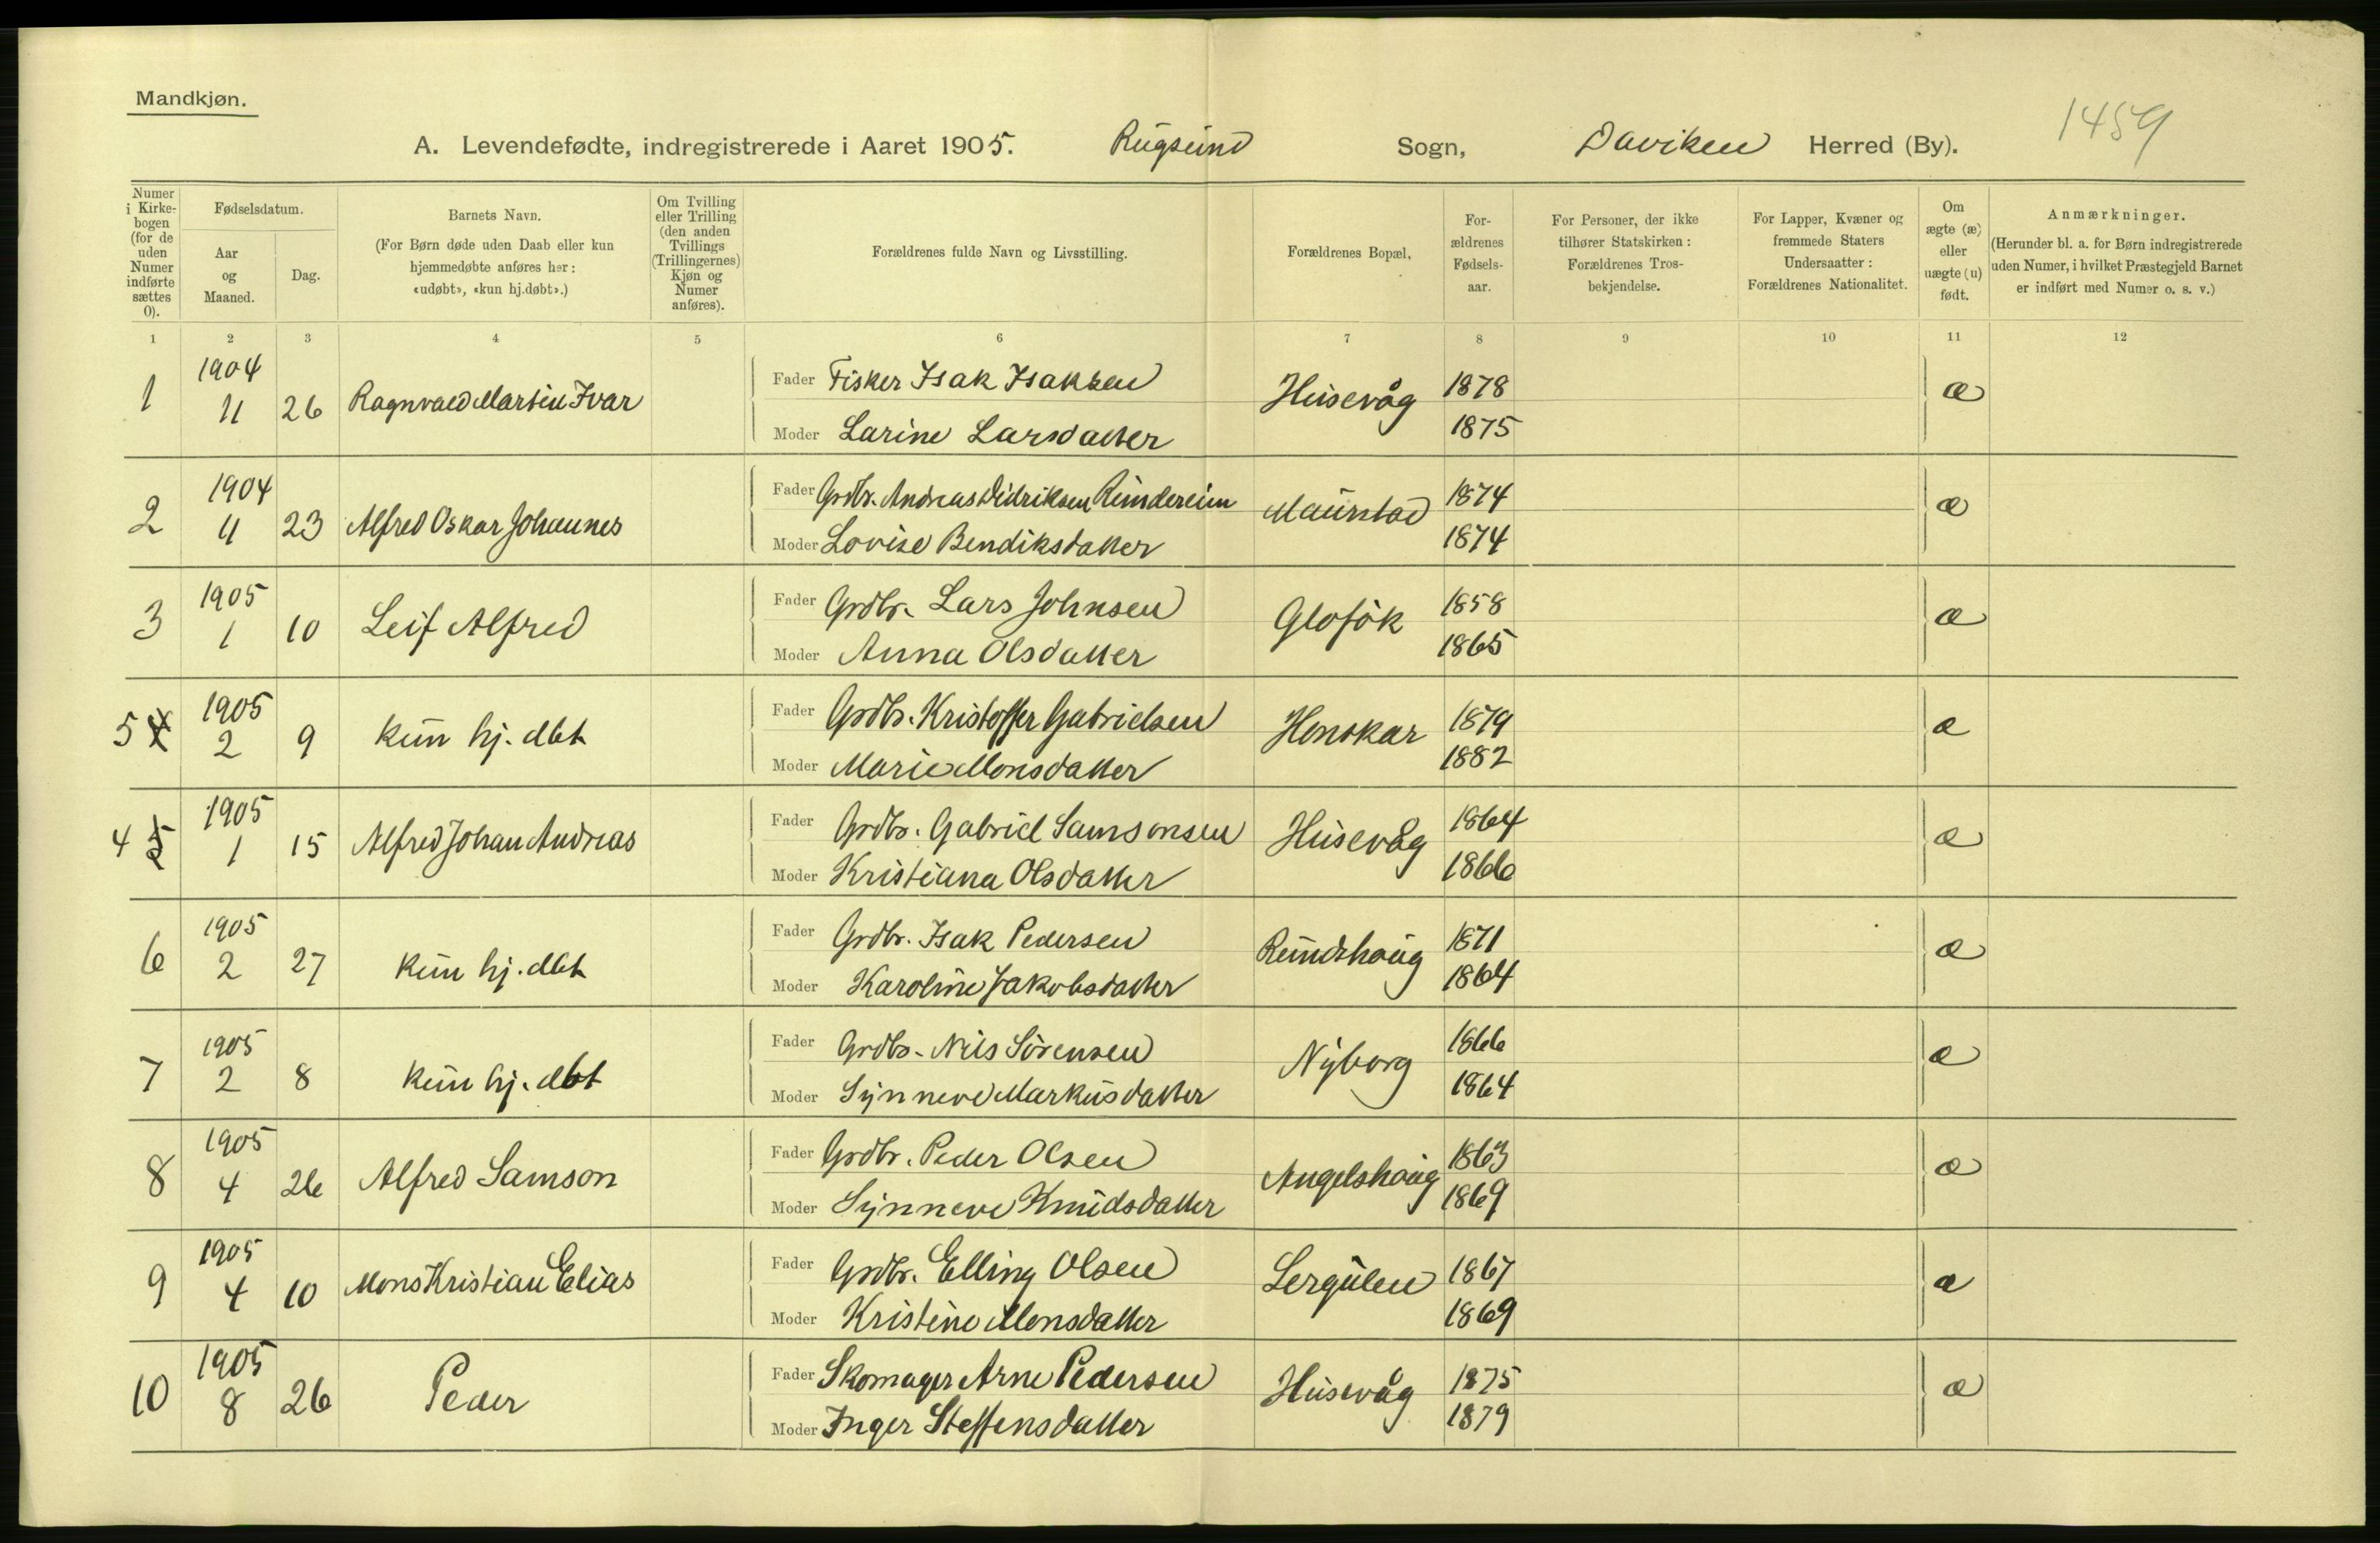 Mandkjøn.
1459
A. Levendefødte, indregistrerede i Aaret 1905. Rugsund Sogn, Daviken Herred (By).
Numer i Kirkebogen (for de uden Numer indførte sættes 0).
Fødselsdatum.
Aar og Maaned.
Dag.
Barnets Navn.
(For Børn døde uden Daab eller kun hjemmedøbte anføres her: «udøbt», «kun hj.døbt».)
Om Tvilling eller Trilling (den anden Tvillings (Trillingernes) Kjøn og Numer anføres).
Forældrenes fulde Navn og Livsstilling.
Forældrenes Bopæl,
Forældrenes Fødselsaar.
For Personer, der ikke tilhører Statskirken: Forældrenes Trosbekjendelse.
For Lapper, Kvæner og fremmede Staters Undersaatter: Forældrenes Nationalitet.
Om ægte (æ) eller uægte (u) født.
Anmærkninger.
(Herunder bl. a. for Børn indregistrerede uden Numer, i hvilket Præstegjeld Barnet er indført med Numer o. s. v.)
1 2 3 4 5 6 7 8 9 10 11 12
1 1904 11 26 Ragnvald Martin Ivar Fader Fisker Isak Isaksen Husevåg 1878 æ
Moder Larine Larsdatter 1875
2 1904 11 23 Alfred Oskar Johannes Fader Grdbr. Andreas Didriksen Rimdereim Maurstad 1874 æ
Moder Lovise Bendiksdatter 1874
3 1905 1 10 Leif Alfred Fader Grdbr. Lars Johnsen Glofok 1858 æ
Moder Anna Olsdatter 1865
5 4 1905 2 9 kun hj. dbt Fader Grdbr. Kristoffer Gabrielsen Honskar 1879 æ
Moder Marie Monsdatter 1882
4 5 1905 1 15 Alfred Johan Andreas Fader Grdbr. Gabriel Samsonsen Husevåg 1864 æ
Moder Kristiana Olsdatter 1866
6 1905 2 27 kun hj. dbt Fader Grdbr. Isak Pedersen Rundshaug 1871 æ
Moder Karoline Jakobsdatter 1864
7 1905 2 8 kun hj. dbt Fader Grdbr. Nils Sörensen Nyborg 1866 æ
Moder Synneve Markusdatter 1864
8 1905 4 26 Alfred Samson Fader Grdbr. Peder Olsen Angelshaug 1863 æ
Moder Synneve Knudsdatter 1869
9 1905 4 10 Mons Kristian Elias Fader Grdbr. Elling Olsen Lergulen 1867 æ
Moder Kristine Monsdatter 1869
10 1905 8 26 Peder Fader Skomager Arne Pedersen Husevåg 1875 æ
Moder Inger Steffensdatter 1879